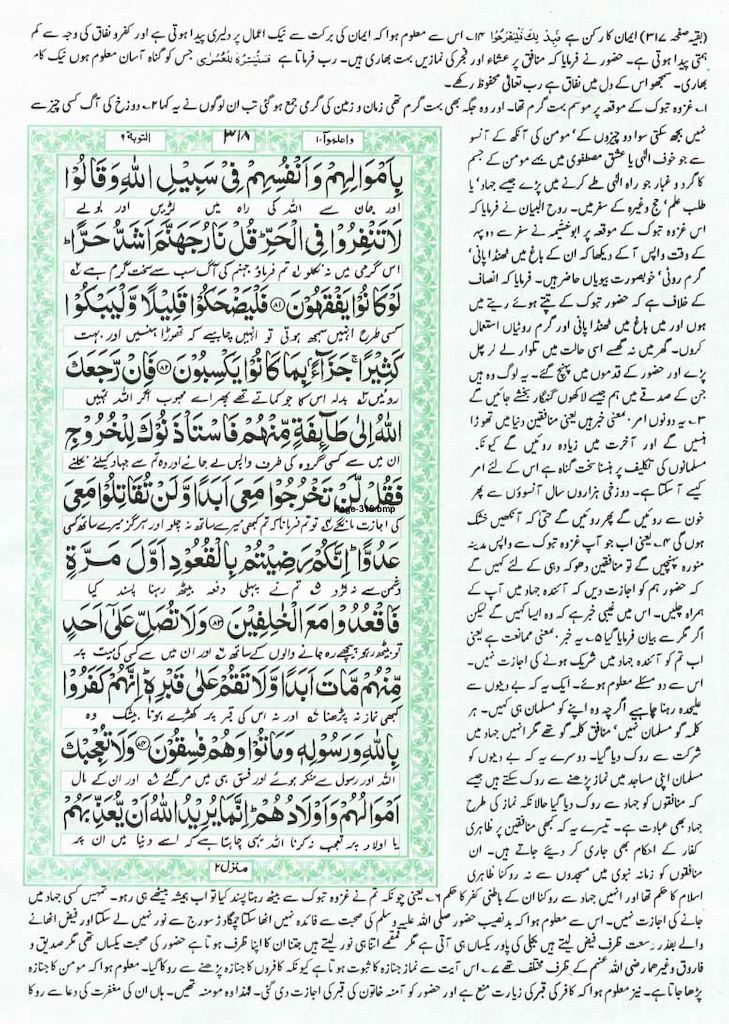 (بقیہ صفحہ ۳۱۷) ایمان کا رکن ہے فَبِذٰلِكَ فَلْيَفْرَحُوْا ۱۴۔ اس سے معلوم ہوا کہ ایمان کی برکت سے نیک اعمال پر دلیری پیدا ہوتی ہے اور کفر و نفاق کی وجہ سے کم
ہمتی پیدا ہوتی ہے۔ حضور نے فرمایا کہ منافق پر عشاء اور فجر کی نمازیں بہت بھاری ہیں۔ رب فرماتا ہے فَسَنُيَسِّرُهٗ لِلْعُسْرٰى جس کو گناہ آسان معلوم ہوں نیک کام
بھاری۔ سمجھو اس کے دل میں نفاق ہے رب تعالیٰ محفوظ رکھے۔
۱۔ غزوہ تبوک کے موقعہ پر موسم بہت گرم تھا۔ اور وہ جگہ بھی بہت گرم تھی زمان و زمین کی گرمی جمع ہو گئی تب ان لوگوں نے یہ کہا ۲۔ دوزخ کی آگ کسی چیز سے
التوبة ۹
۳۱۸
واعلموا ۱۰
بِاَمْوَالِهِمْ وَاَنْفُسِهِمْ فِيْ سَبِيْلِ اللّٰهِ وَقَالُوْا
اور جان سے اللہ کی راہ میں لڑیں اور بولے
لَا تَنْفِرُوْا فِي الْحَرِّ قُلْ نَارُ جَهَنَّمَ اَشَدُّ حَرًّا
اس گرمی میں نہ نکلو تم فرماؤ جہنم کی آگ سب سے سخت گرم ہے
لَوْ كَانُوْا يَفْقَهُوْنَ ۸۱ فَلْيَضْحَكُوْا قَلِيْلًا وَّلْيَبْكُوْا
کسی طرح انہیں سمجھ ہوتی تو انہیں چاہیے کہ تھوڑا ہنسیں اور بہت
كَثِيْرًا جَزَآءًۢ بِمَا كَانُوْا يَكْسِبُوْنَ ۸۲ فَاِنْ رَّجَعَكَ
روئیں بدلہ اس کا جو کماتے تھے پھر اے محبوب اگر اللہ تمہیں
اللّٰهُ اِلٰى طَآئِفَةٍ مِّنْهُمْ فَاسْتَاْذَنُوْكَ لِلْخُرُوْجِ
ان میں سے کسی گروہ کی طرف واپس لے جائے اور وہ تم سے جہاد کیلئے نکلنے
فَقُلْ لَّنْ تَخْرُجُوْا مَعِيَ اَبَدًا وَّلَنْ تُقَاتِلُوْا مَعِيَ
Page-318.bmp
کی اجازت مانگے تو تم فرمانا کہ تم کبھی میرے ساتھ نہ چلو اور ہرگز میرے ساتھ کسی
عَدُوًّا اِنَّكُمْ رَضِيْتُمْ بِالْقُعُوْدِ اَوَّلَ مَرَّةٍ
دشمن سے نہ لڑو تم نے پہلی دفعہ بیٹھ رہنا پسند کیا
فَاقْعُدُوْا مَعَ الْخٰلِفِيْنَ ۸۳ وَلَا تُصَلِّ عَلٰٓى اَحَدٍ
تو بیٹھ رہو پیچھے رہ جانے والوں کے ساتھ اور ان میں سے کسی کی میت پر
مِّنْهُمْ مَّاتَ اَبَدًا وَّلَا تَقُمْ عَلٰى قَبْرِهٖ اِنَّهُمْ كَفَرُوْا
کبھی نماز نہ پڑھنا اور نہ اس کی قبر پر کھڑے ہونا بیشک وہ
بِاللّٰهِ وَرَسُوْلِهٖ وَمَاتُوْا وَهُمْ فٰسِقُوْنَ ۸۴ وَلَا تُعْجِبْكَ
اللہ اور رسول سے منکر ہوئے اور فسق ہی میں مر گئے اور ان کے مال
اَمْوَالُهُمْ وَاَوْلَادُهُمْ اِنَّمَا يُرِيْدُ اللّٰهُ اَنْ يُّعَذِّبَهُمْ
یا اولاد پر تعجب نہ کرنا اللہ یہی چاہتا ہے کہ اسے دنیا میں ان پر
منزل ۲
نہیں بجھ سکتی سوا دو چیزوں کے مومن کی آنکھ کے آنسو
سے جو خوف الٰہی یا عشق مصطفوی میں بہے مومن کے جسم
کا گرد و غبار جو راہ الٰہی طے کرنے میں پڑے جیسے جہاد یا
طلب علم حج وغیرہ کے سفر میں۔ روح البیان نے فرمایا کہ
اس غزوہ تبوک کے موقعہ پر ابوخثیمہ نے سفر سے دوپہر
کے وقت واپس آ کے دیکھا کہ ان کے باغ میں ٹھنڈا پانی
گرم روٹی خوبصورت بیویاں حاضر ہیں۔ فرمایا کہ انصاف
کے خلاف ہے کہ حضور تبوک کے تپتے ہوئے ریتے میں
ہوں اور میں باغ میں ٹھنڈا پانی اور گرم روٹیاں استعمال
کروں۔ گھر میں نہ گھسے اسی حالت میں تلوار لے کر چل
پڑے اور حضور کے قدموں میں پہنچ گئے۔ یہ لوگ وہ ہیں
جن کے صدقے میں ہم جیسے لاکھوں گنہگار بخشے جائیں گے
۳۔ یہ دونوں امر بمعنی خبر ہیں یعنی منافقین دنیا میں تھوڑا
ہنسیں گے اور آخرت میں زیادہ روئیں گے کیونکہ
مسلمانوں کی تکلیف پر ہنسنا سخت گناہ ہے اس کے لئے امر
کیسے آ سکتا ہے۔ دوزخی ہزاروں سال آنسوؤں سے پھر
خون سے روئیں گے پھر روئیں گے حتیٰ کہ آنکھیں خشک
ہوں گی ۴۔ یعنی اب جو آپ غزوہ تبوک سے واپس مدینہ
منورہ پہنچیں گے تو منافقین دھوکہ دہی کے لئے کہیں گے
کہ حضور ہم کو اجازت دیں کہ آئندہ جہاد میں آپ کے
ہمراہ چلیں۔ اس میں غیبی خبر ہے کہ وہ ایسا کہیں گے لیکن
اگر مگر سے بیان فرمایا گیا ۵۔ یہ خبر بمعنی ممانعت ہے یعنی
اب تم کو آئندہ جہاد میں شریک ہونے کی اجازت نہیں۔
اس سے دو مسئلے معلوم ہوئے۔ ایک یہ کہ بے دینوں سے
علیحدہ رہنا چاہیے اگرچہ وہ اپنے کو مسلمان ہی کہیں۔ ہر
کلمہ گو مسلمان نہیں منافق کلمہ گو تھے مگر انہیں جہاد میں
شرکت سے روک دیا گیا۔ دوسرے یہ کہ بے دینوں کو
مسلمان اپنی مساجد میں نماز پڑھنے سے روک سکتے ہیں جیسے
کہ منافقوں کو جہاد سے روک دیا گیا حالانکہ نماز کی طرح
جہاد بھی عبادت ہے۔ تیسرے یہ کہ کبھی منافقین پر ظاہری
کفار کے احکام بھی جاری کر دیئے جاتے ہیں۔ ان
منافقوں کو زمانہ نبوی میں مسجدوں سے نہ روکنا ظاہری
اسلام کا حکم تھا اور انہیں جہاد سے روکنا ان کے باطنی کفر کا حکم ۶۔ یعنی چونکہ تم نے غزوہ تبوک سے بیٹھ رہنا پسند کیا تو اب ہمیشہ بیٹھے ہی رہو۔ تمہیں کسی جہاد میں
جانے کی اجازت نہیں۔ اس سے معلوم ہوا کہ بدنصیب حضور صلی اللہ علیہ وسلم کی صحبت سے فائدہ نہیں اٹھا سکتا چمگادڑ سورج سے نور نہیں لے سکتا اور فیض اٹھانے
والے بقدر وسعت ظرف فیض لیتے ہیں بجلی کی پاور یکساں ہی آتی ہے مگر قمقمے اتنا ہی نور لیتے ہیں جتنا ان کا اپنا ظرف ہوتا ہے حضور کی صحبت یکساں تھی مگر صدیق و
فاروق وغیرہما رضی اللہ عنہم کے ظرف مختلف تھے ۷۔ اس آیت سے نماز جنازہ کا ثبوت ہوتا ہے کیونکہ کافروں کا جنازہ پڑھنے سے روکا گیا۔ معلوم ہوا کہ مومن کا جنازہ
پڑھا جاتا ہے۔ نیز معلوم ہوا کہ کافر کی قبر کی زیارت منع ہے اور حضور کو آمنہ خاتون کی قبر کی اجازت دی گئی۔ لہٰذا وہ مومنہ تھیں۔ ہاں ان کی مغفرت کی دعا سے روکا